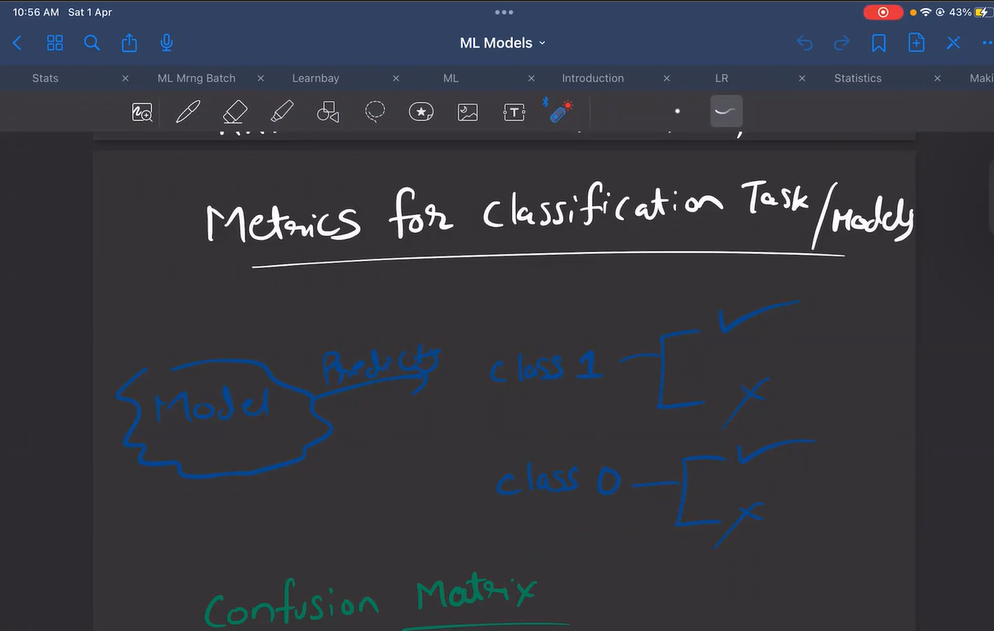 10:56 AM Sat 1 Apr
43%
ML Models
Stats
ML Mrng Batch
Learnbay
ML
Introduction
LR
Statistics
Maki
Metrics for Classification Task/Models
Model
Predicts
class 1
class 0
Confusion Matrix